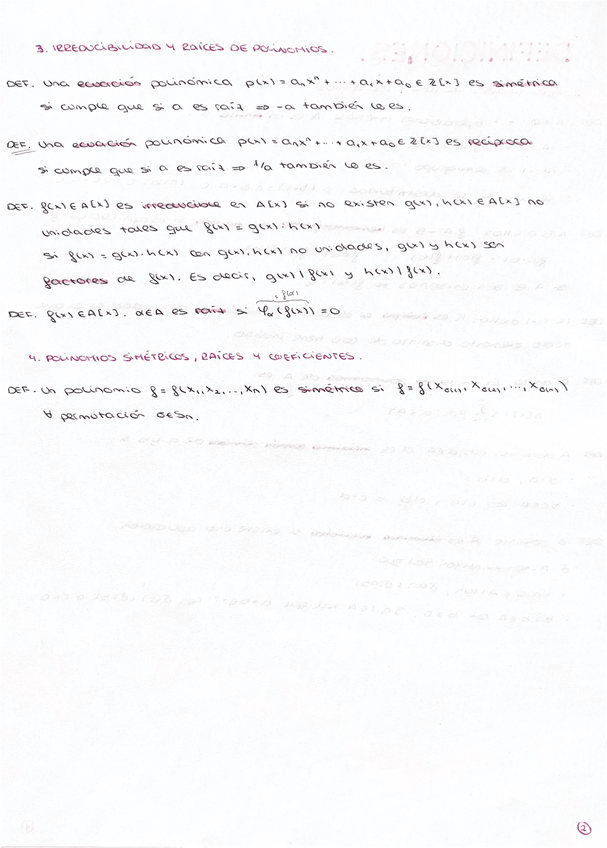 3. IRREDUCIBILIDAD Y RAÍCES DE POLINOMIOS.
DEF. Una ecuación polinómica p(x) = aₙxⁿ + ... + a₁x + a₀ ∈ ℤ[x] es simétrica
si cumple que si a es raíz ⇒ -a también lo es.
DEF. Una ecuación polinómica p(x) = aₙxⁿ + ... + a₁x + a₀ ∈ ℤ[x] es recíproca
si cumple que si a es raíz ⇒ 1/a también lo es.
DEF. f(x) ∈ A[x] es irreducible en A[x] si no existen g(x), h(x) ∈ A[x] no
unidades tales que f(x) = g(x)·h(x)
Si f(x) = g(x)·h(x) con g(x), h(x) no unidades, g(x) y h(x) son
factores de f(x). Es decir, g(x) | f(x) y h(x) | f(x).
= f(α)
DEF. f(x) ∈ A[x]. α ∈ A es raíz si φ_α(f(x)) = 0
4. POLINOMIOS SIMÉTRICOS, RAÍCES Y COEFICIENTES.
DEF. Un polinomio f = f(x₁, x₂, ..., xₙ) es simétrico si f = f(x_σ(1), x_σ(2), ..., x_σ(n))
∀ permutación σ ∈ Sₙ.
2